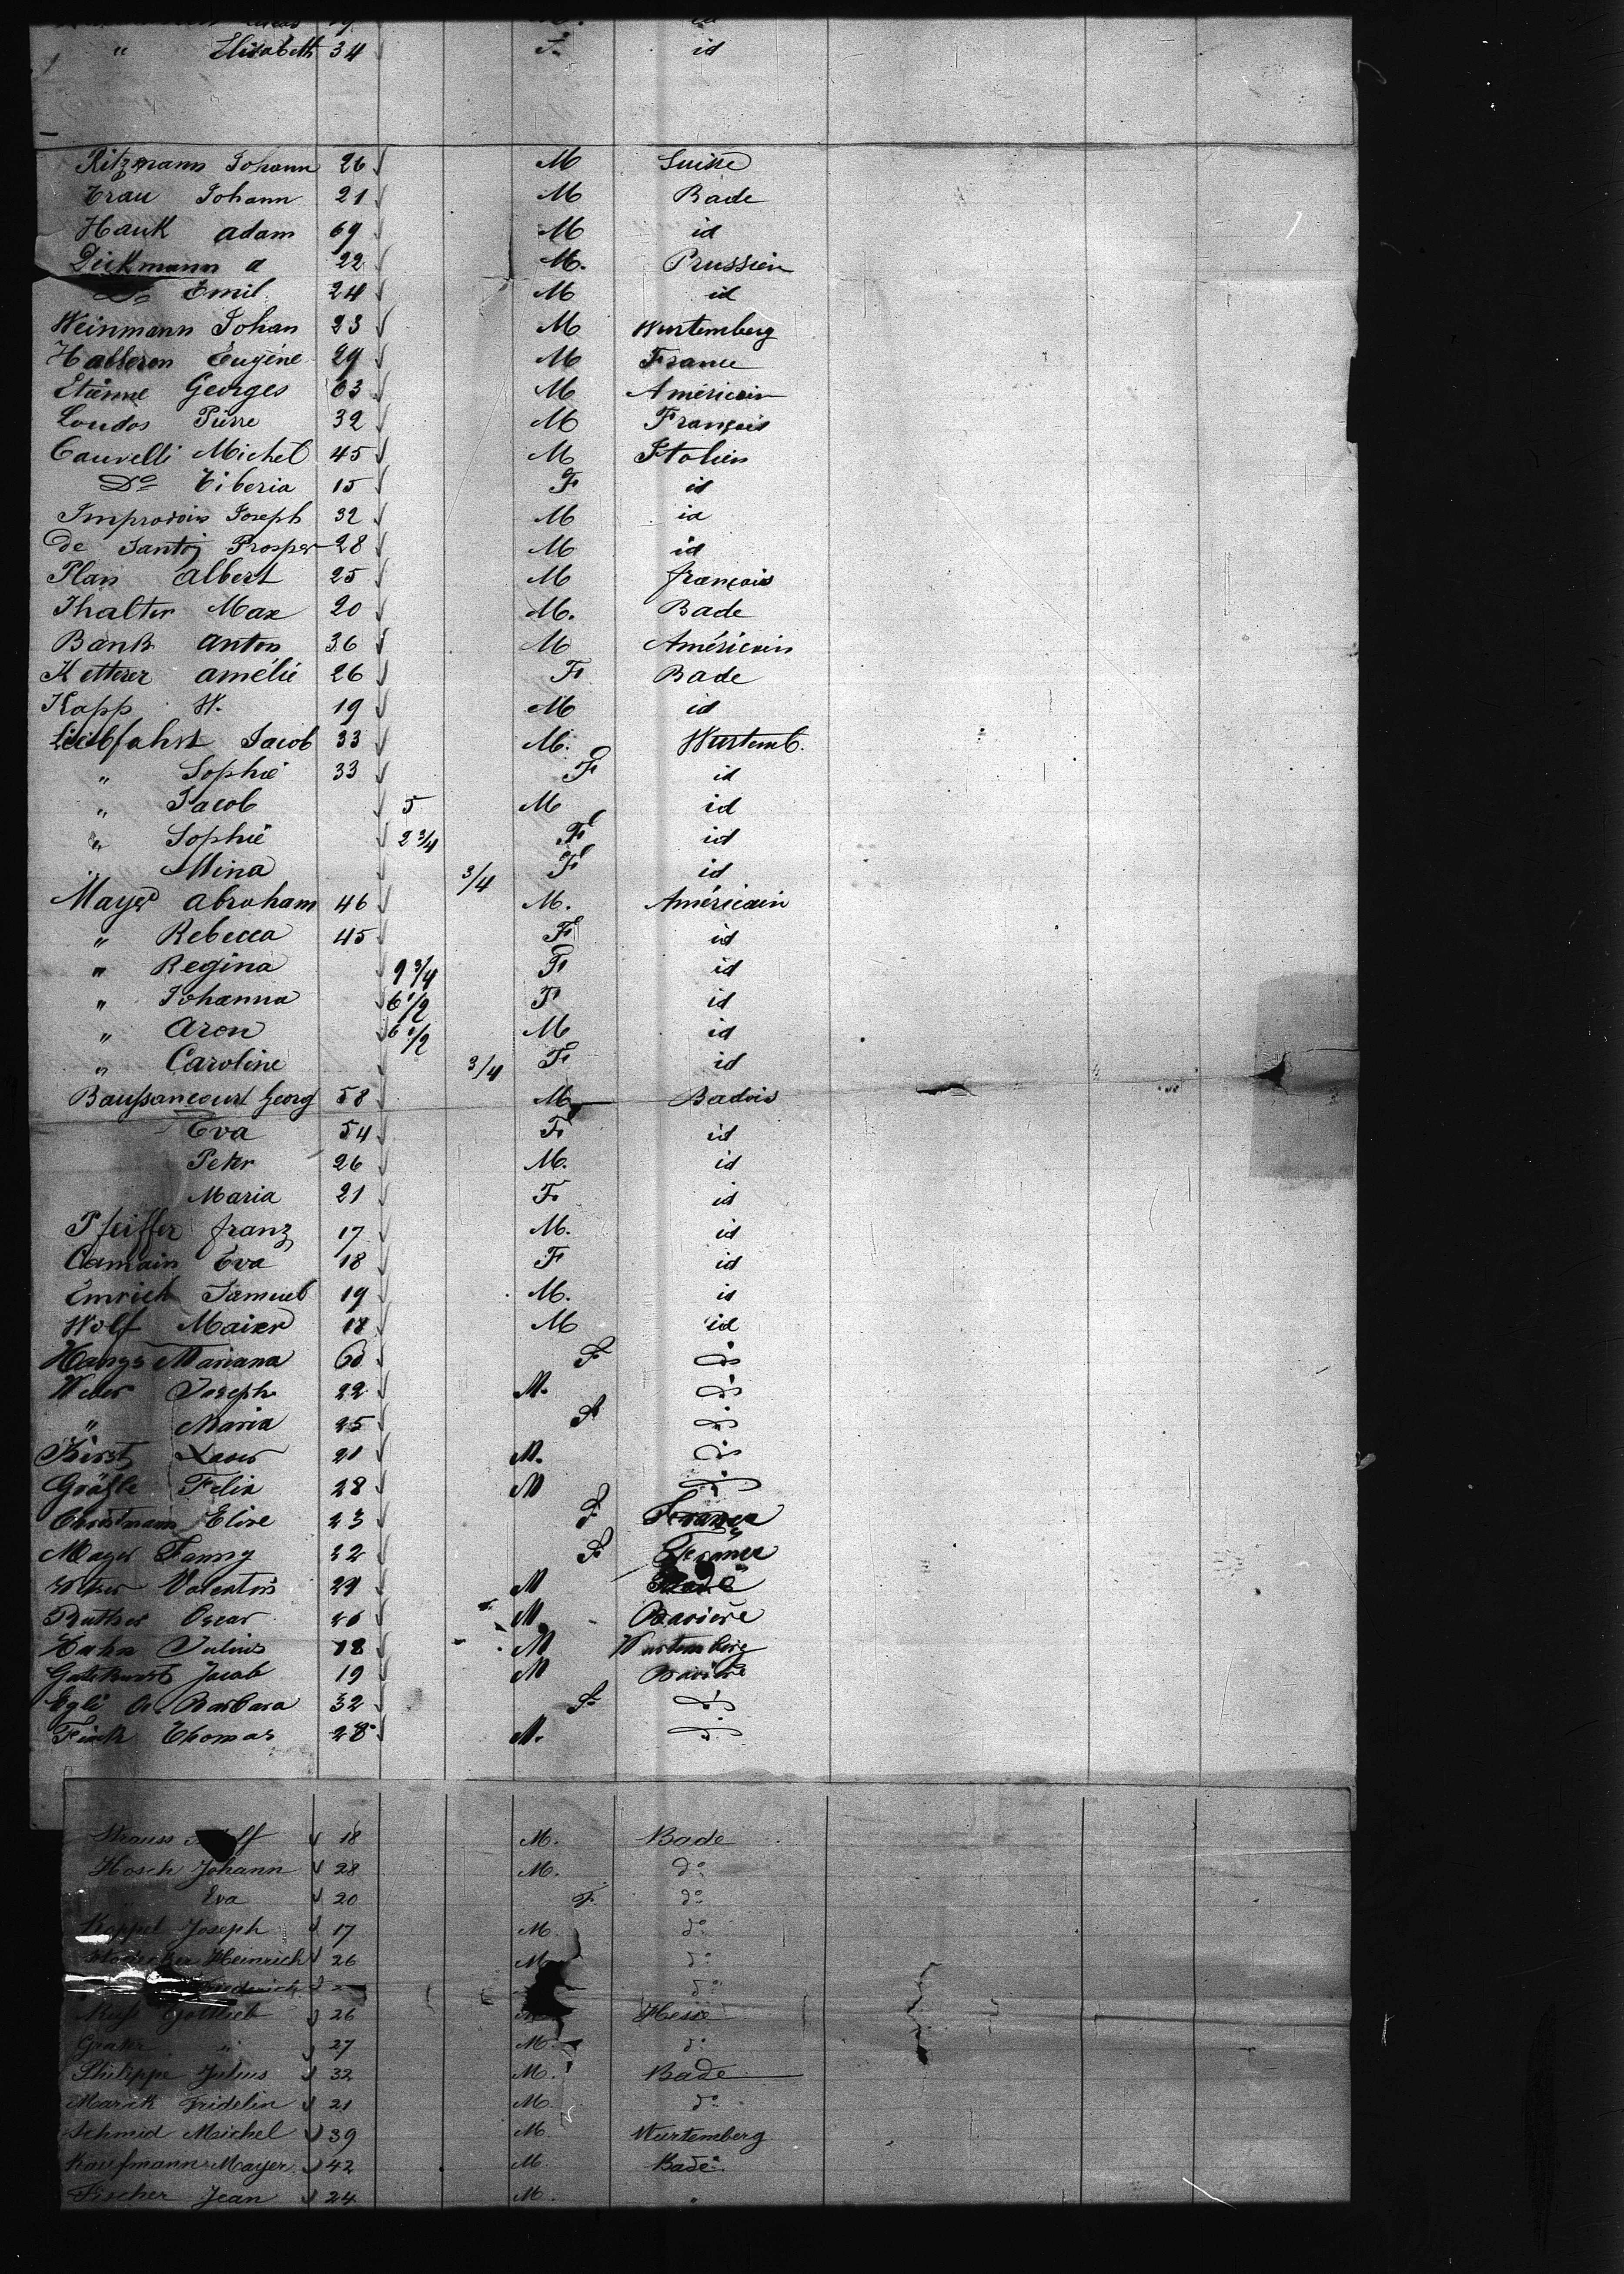 " Elisabeth 34 F. id
Ritzmann Johann 26 M Suisse
Trau Johann 21 M Bade
Hauk adam 69 M id
Dickmann a 22 M. Prussien
Do Emil 24 M id
Weinmann Johan 23 M Wurtemberg
Halleron Eugéne 29 M France
Etienne Georges 63 M Américain
Loudos Pierre 32 M Français
Cauvelli Michel 45 M Italien
Do Tiberia 15 F id
Joseph 32 M id
de Santi Prosper 28 M id
Plan albert 25 M français
Thalter Max 20 M. Bade
Bank anton 36 M Américain
Ketterer amélie 26 F Bade
Kapp W. 19 M id
Leibfahrt Jacob 33 M. Wurtemb.
" Sophie 33 F id
" Jacob 5 M id
" Sophie 2 3/4 F id
" Mina 3/4 F id
Mayer abraham 46 M. Américain
" Rebecca 45 F id
" Regina 9 3/4 F id
" Johanna 6 1/2 F id
" aron 6 1/2 M id
" Caroline 3/4 F id
Baußancourt Georg 58 M Badois
Eva 54 F id
Peter 26 M. id
Maria 21 F id
Pfeiffer franz 17 M. id
Camain Eva 18 F id
Emrich Samuel 19 M. id
Wolf Maier 18 M id
Hangs Mariana 60 F do
Weber Joseph 22 M. do
" Maria 25 F do
Fürst 21 M. do
Gräfle Felix 28 M do
Christmann Elise 23 F France
Mayer Fanny 32 F France
Valentin 29 M Bade
Ruther Oscar 26 M Baviere
Hahn Julius 18 M Wurtemberg
Jacob 19 M Baviere
Egli Barbara 32 F do
Fink Thomas 28 M. do
Strauss 18 M. Bade
Hosch Johann 28 M. do
Eva 20 F. do
Koppel Joseph 17 M do
Heinrich 26 M do
Friederich do
Gottlieb 26 Hesse
Grater " 27 M. do
Philippe Julius 32 M. Bade
Marck Fridelin 21 M. do
Schmid Michel 39 M. Wurtemberg
Kaufmann Mayer 42 M Bade
Fischer Jean 24 M. "